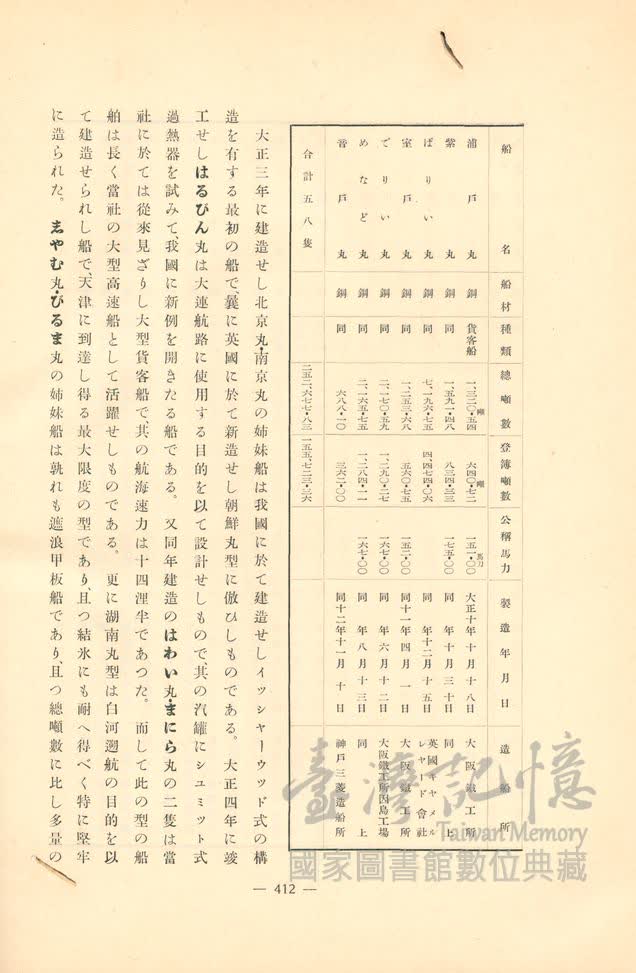 船名 船材 種類 總噸數 登簿噸數 公稱馬力 製造年月日 造船所
浦戶丸 鋼 貨客船 一、三二〇・五四噸 六四〇・七二噸 一五一・〇〇馬力 大正十年十月十八日 大阪鐵工所
紫丸 鋼 同 一、五九一・四八 八三四・三三 一七五・〇〇 同年十月三十日 同上
ぱりい丸 鋼 同 七、一九六・七五 四、四七四・〇六 同年十二月十五日 英國キャメルレヤード會社
室戶丸 鋼 同 一、二五三・六八 五六〇・七五 一五二・〇〇 同十一年四月一日 大阪鐵工所
でりい丸 鋼 同 二、一七〇・五九 一、二九〇・二七 同年六月十二日 大阪鐵工所因島工場
めなど丸 鋼 同 二、一六五・七五 一、二八四・一一 一六七・〇〇 同年八月十三日 同上
音戶丸 鋼 同 六八八・一〇 三六二・〇〇 同十二年十一月十日 神戶三菱造船所
合計五八隻 二五二、六七七・八三 一五五、七二三・三六
大正三年に建造せし北京丸・南京丸の姉妹船は我國に於て建造せしイッシャーウッド式の構
造を有する最初の船で、曩に英國に於て新造せし朝鮮丸型に倣ひしものである。 大正四年に竣
工せしはるびん丸は大連航路に使用する目的を以て設計せしもので、其の汽罐にシユミット式
過熱器を試みて、我國に新例を開きたる船である。 又同年建造のはわい丸・まにら丸の二隻は當
社に於ては從來見ざりし大型貨客船で、其の航海速力は十四浬半であつた。 而して此の型の船
舶は長く當社の大型高速船として活躍せしものである。 更に湖南丸型は白河遡航の目的を以
て建造せられし船で、天津に到達し得る最大限度の型であり、且つ結氷にも耐へ得べく特に堅牢
に造られた。 志やむ丸・びるま丸の姉妹船は孰れも遮浪甲板船であり、且つ總噸數に比し多量の
— 412 —
臺灣記憶
Taiwan Memory
國家圖書館數位典藏